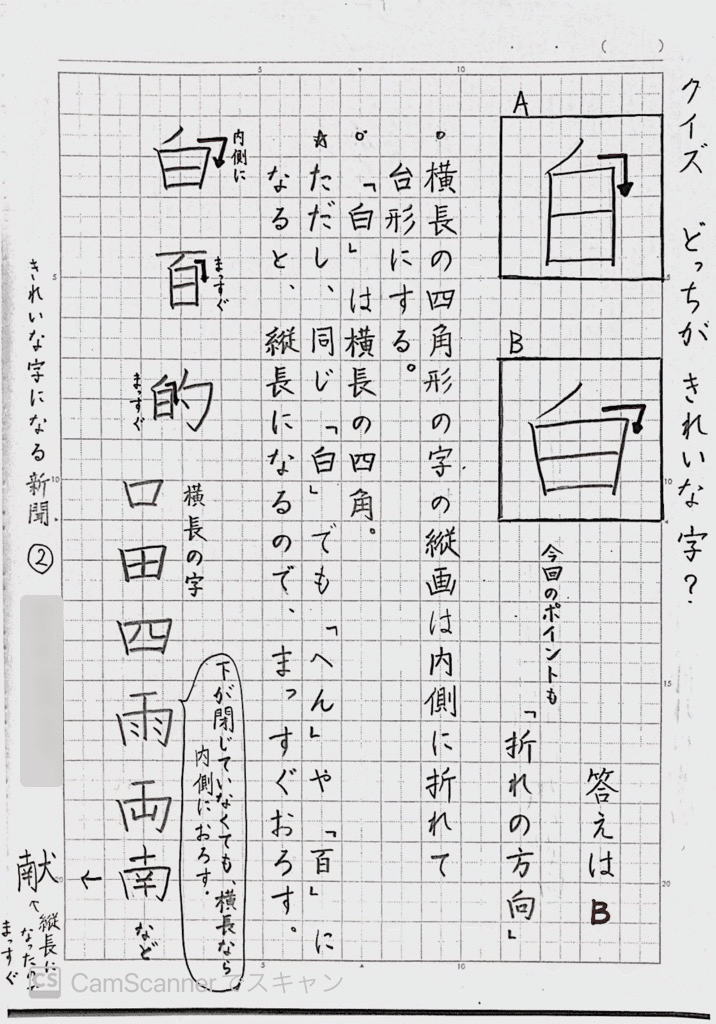 クイズ どっちが きれいな字?
A
自
B
白
答えは B
今回のポイントも
「折れの方向」
横長の四角形の字の縦画は内側に折れて
台形にする。
「白」は横長の四角。
☆ただし、同じ「白」でも「へん」や「百」に
なると、縦長になるので、まっすぐおろす。
白
内側に
百
まっすぐ
的
まっすぐ
横長の字
口 田 四 雨 両 南 など
下が閉じていなくても、横長なら
内側におろす.
献
縦長に
なったので
まっすぐ
きれいな字になる新聞 ②
5
10
5
10
15
20
5
10
15
20
5
10
CS CamScanner でスキャン